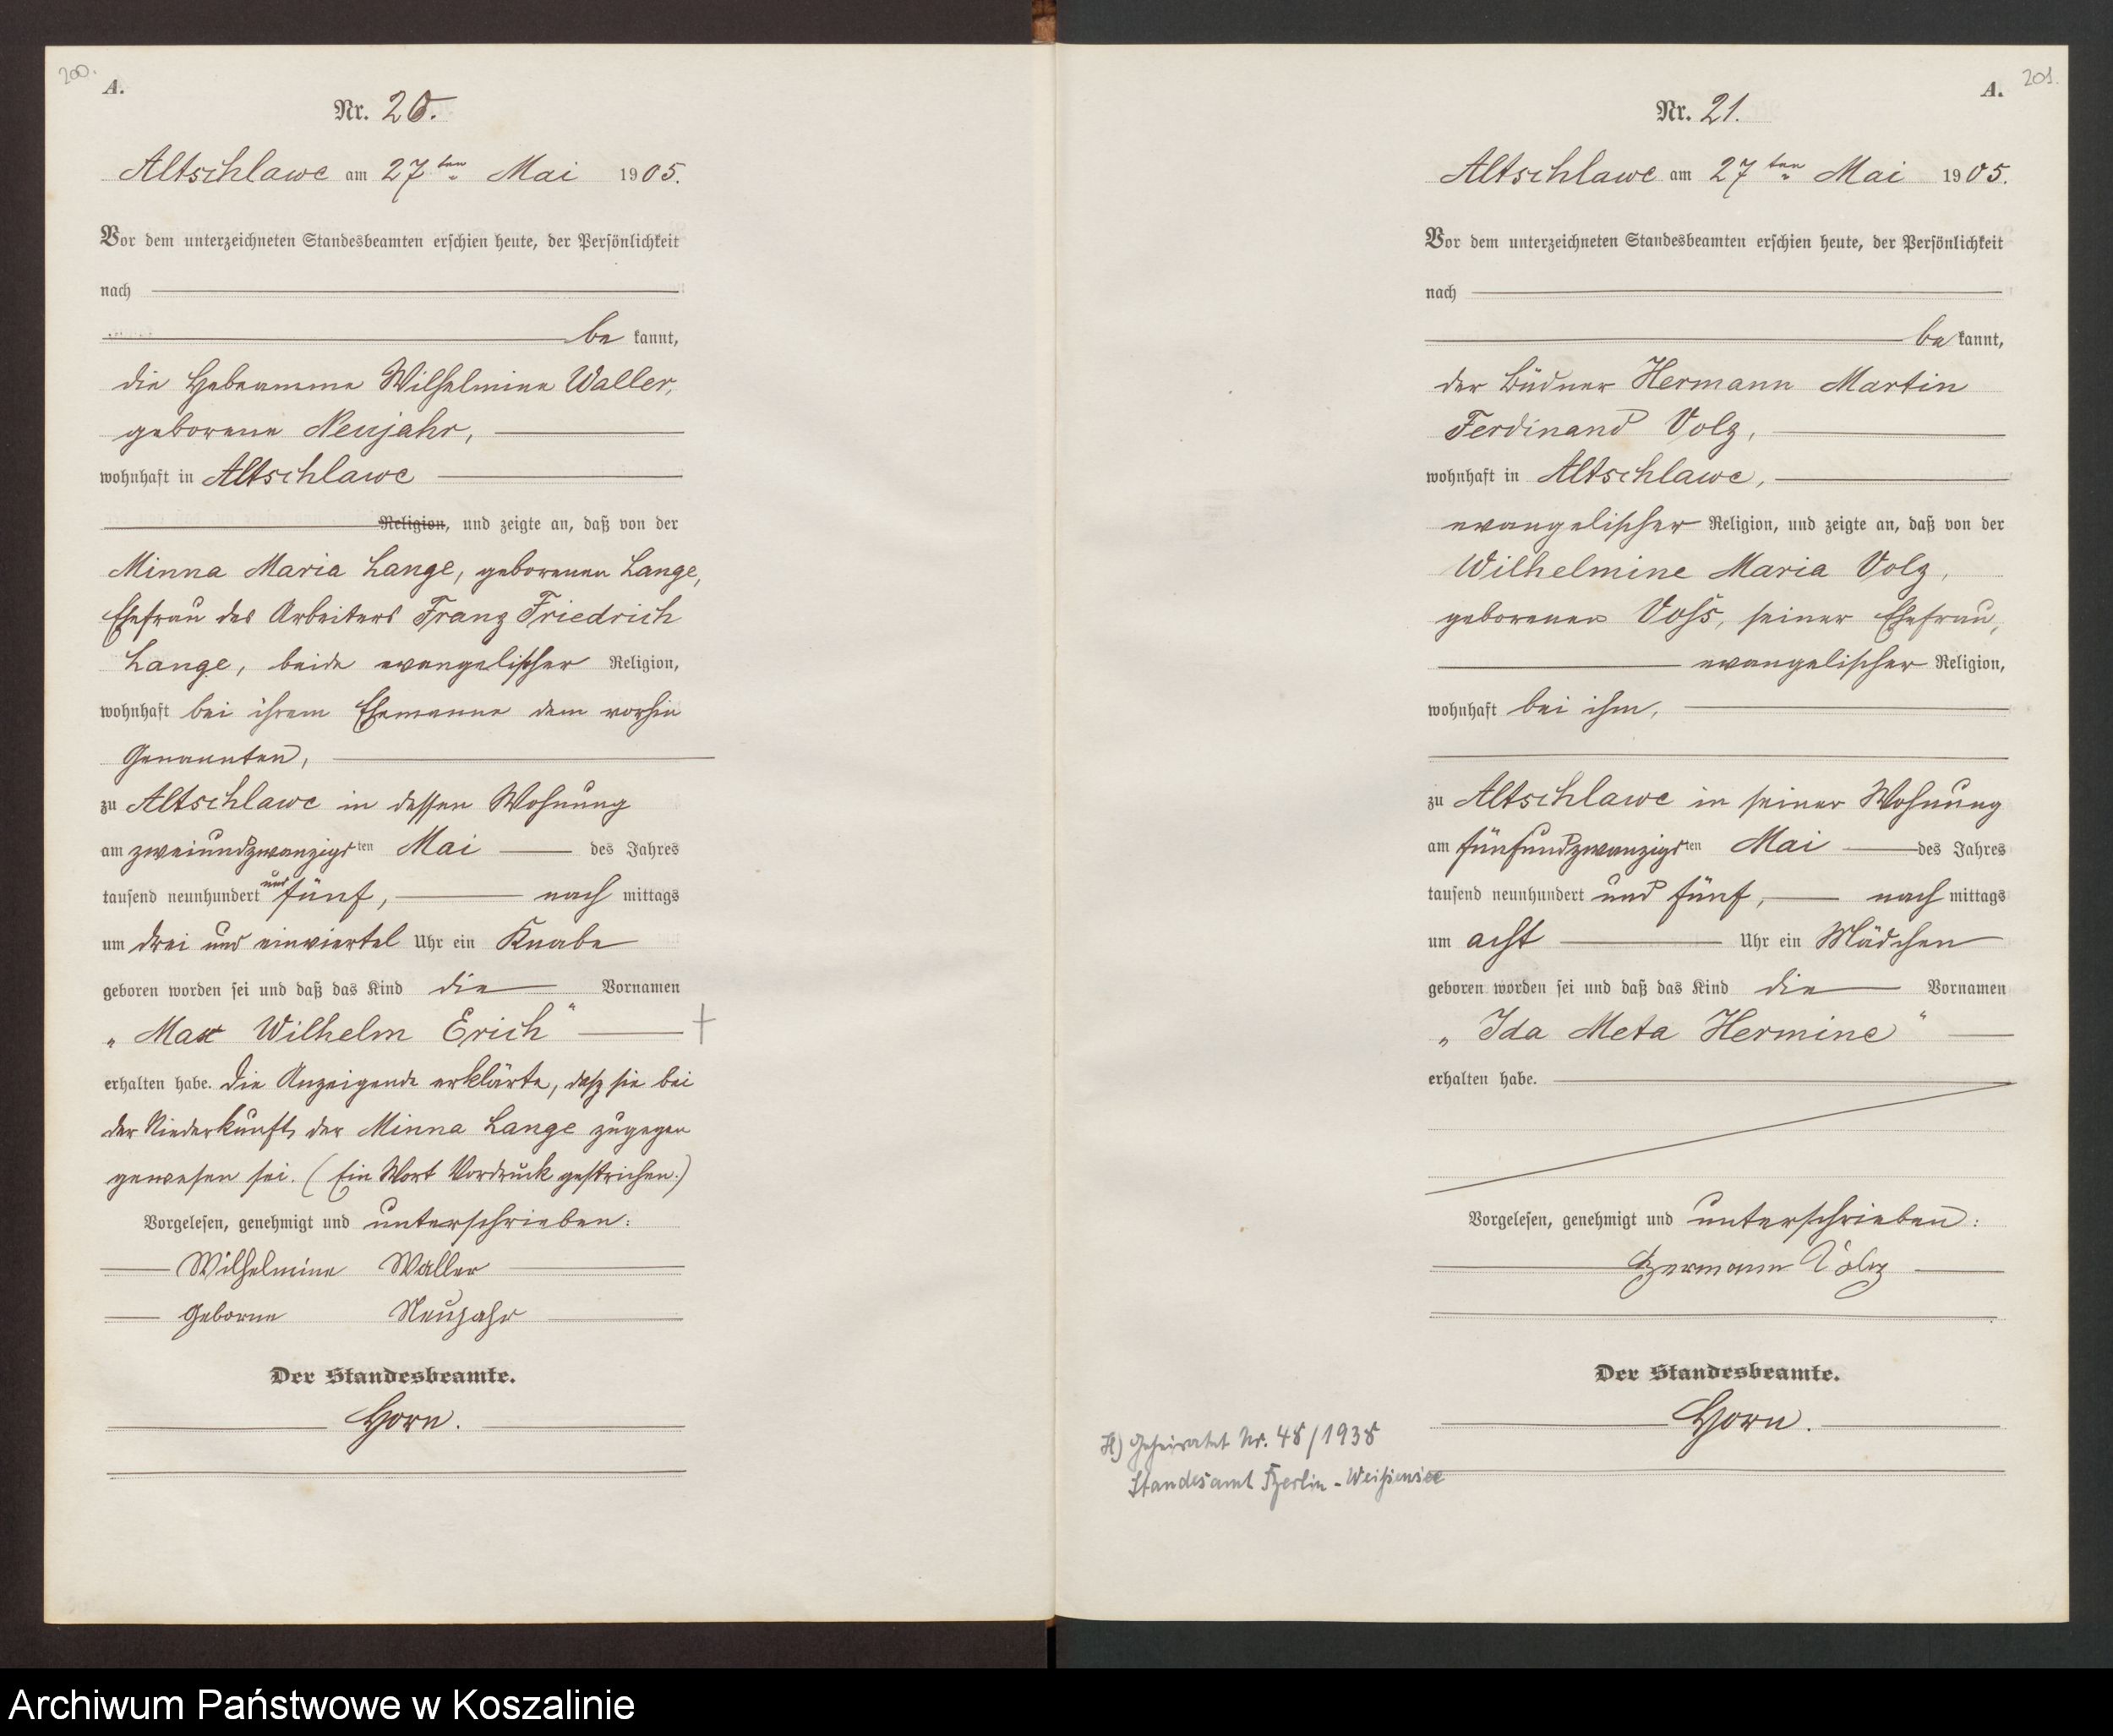 200.
A.
Nr. 20.
Altschlawe am 27ten Mai 1905.
Vor dem unterzeichneten Standesbeamten erschien heute, der Persönlichkeit
nach
be kannt,
die Hebeamme Wilhelmine Waller,
geborene Neujahr,
wohnhaft in Altschlawe
Religion, und zeigte an, daß von der
Minna Maria Lange, geborenen Lange,
Ehefrau des Arbeiters Franz Friedrich
Lange, beide evangelischer Religion,
wohnhaft bei ihrem Ehemanne dem vorhin
Genannten,
zu Altschlawe in dessen Wohnung
am zweiundzwanzigsten Mai des Jahres
tausend neunhundert und fünf, nach mittags
um drei und einviertel Uhr ein Knabe
geboren worden sei und daß das Kind die Vornamen
„Max Wilhelm Erich“
erhalten habe. Die Anzeigende erklärte, daß sie bei
der Niederkunft der Minna Lange zugegen
gewesen sei. (Ein Wort Vordruck gestrichen.)
Vorgelesen, genehmigt und unterschrieben:
Wilhelmine Waller
Geborne Neujahr
Der Standesbeamte.
Horn.
201.
A.
Nr. 21.
Altschlawe am 27ten Mai 1905.
Vor dem unterzeichneten Standesbeamten erschien heute, der Persönlichkeit
nach
be kannt,
der Büdner Hermann Martin
Ferdinand Volz,
wohnhaft in Altschlawe,
evangelischer Religion, und zeigte an, daß von der
Wilhelmine Maria Volz,
geborenen Voß, seiner Ehefrau,
evangelischer Religion,
wohnhaft bei ihm,
zu Altschlawe in seiner Wohnung
am fünfundzwanzigsten Mai des Jahres
tausend neunhundert und fünf, nach mittags
um acht Uhr ein Mädchen
geboren worden sei und daß das Kind die Vornamen
„Ida Meta Hermine“
erhalten habe.
Vorgelesen, genehmigt und unterschrieben:
Hermann Volz
Der Standesbeamte.
Horn.
H) Geheiratet Nr. 48/1938
Standesamt Berlin-Weißensee
Archiwum Państwowe w Koszalinie